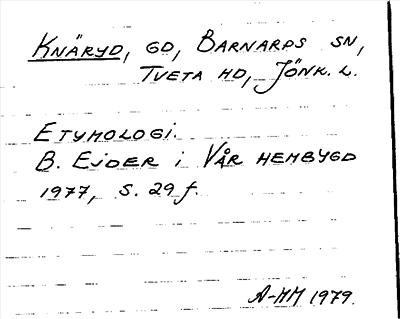 KNÄRYD, GD, BARNARPS SN,
TVETA HD, JÖNK. L.
ETYMOLOGI.
B. EJDER i VÅR HEMBYGD
1977, S. 29 f.
A-MM 1979.